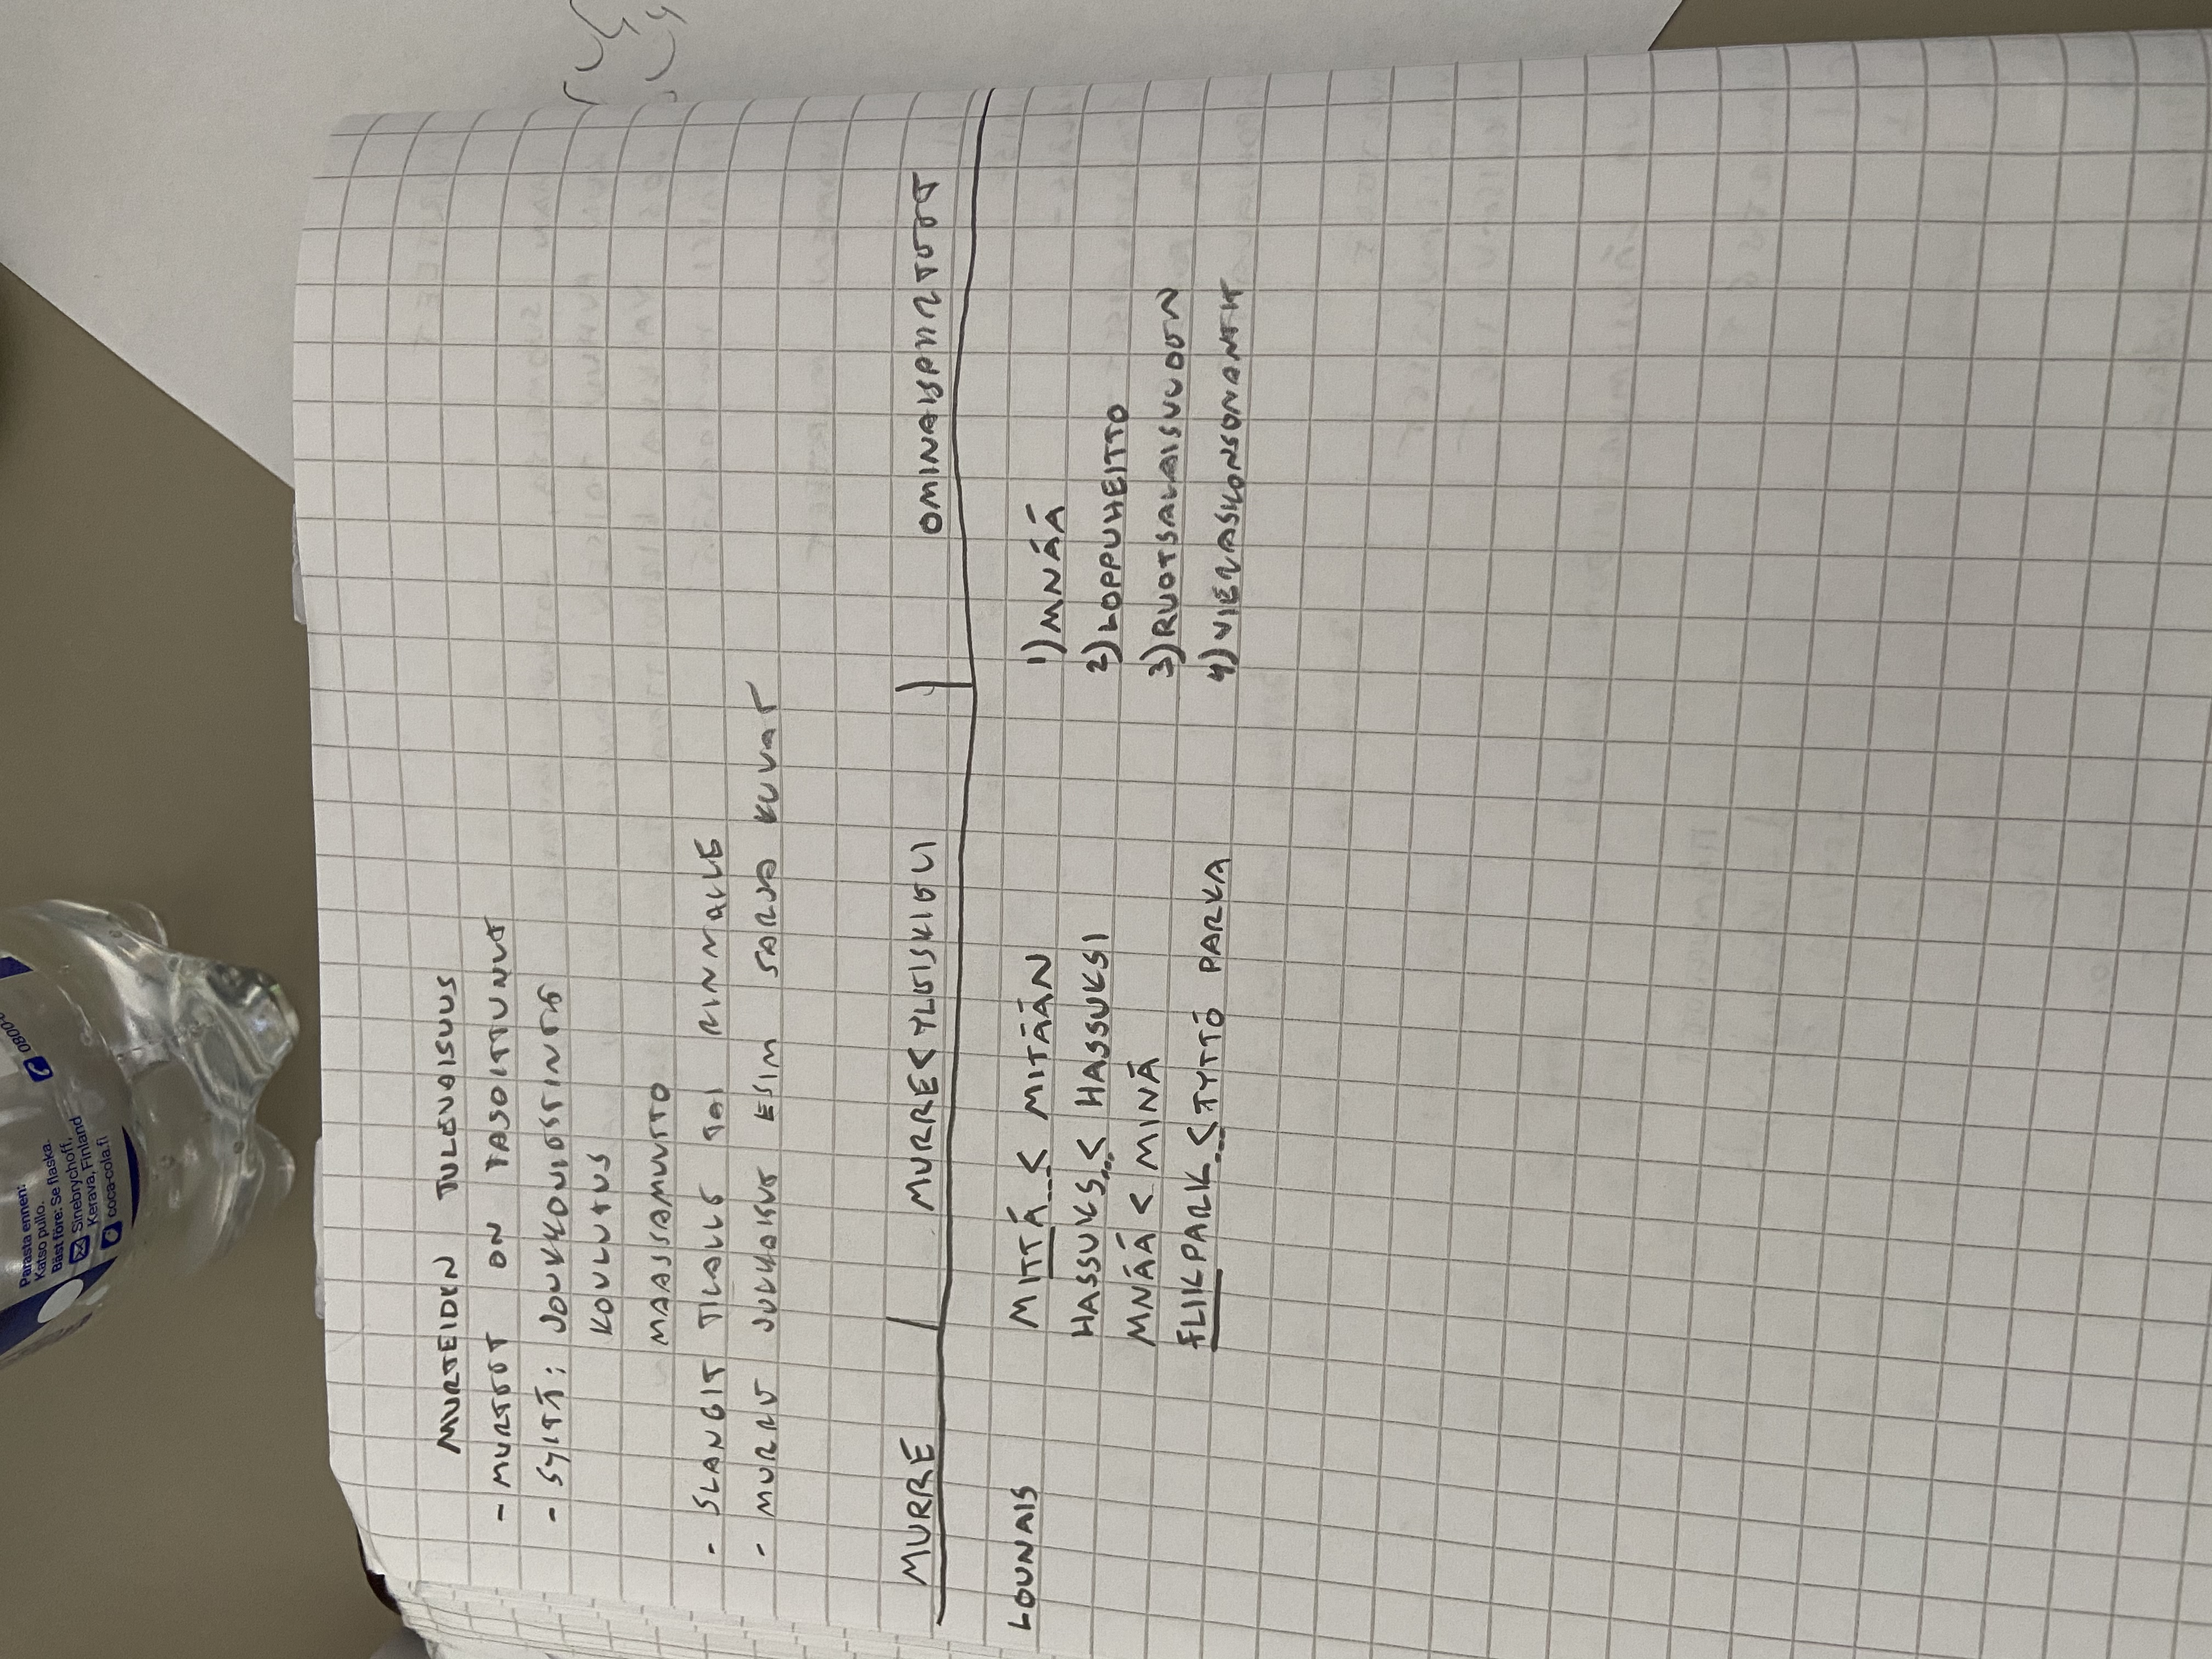 MURTEIDEN TULEVAISUUS
- MURTEET ON TASOITTUNUT
- SYITÄ: JOUKKOVIESTINTE
KOULUTUS
MAASSAMUUTTO
- SLANGIT TILALLE TAI RINNALLE
- MURRE JULKAISUT ESIM SARJA KUVAT
MURRE MURRE<YLEISKIELI OMINAISPIIRTEET
LOUNAIS MITTÄ < MITÄÄN 1) MNÄÄ
HASSUKS < HASSUKSI 2) LOPPUHEITTO
MNÄÄ < MINÄ 3) RUOTSALAISUUDEN
FLIKPARK < TYTTÖ PARKA 4) VIERASKONSONANTIT
Parasta ennen:
Katso pullo.
Bäst före: Se flaska.
Sinebrychoff,
Kerava, Finland
coca-cola.fi